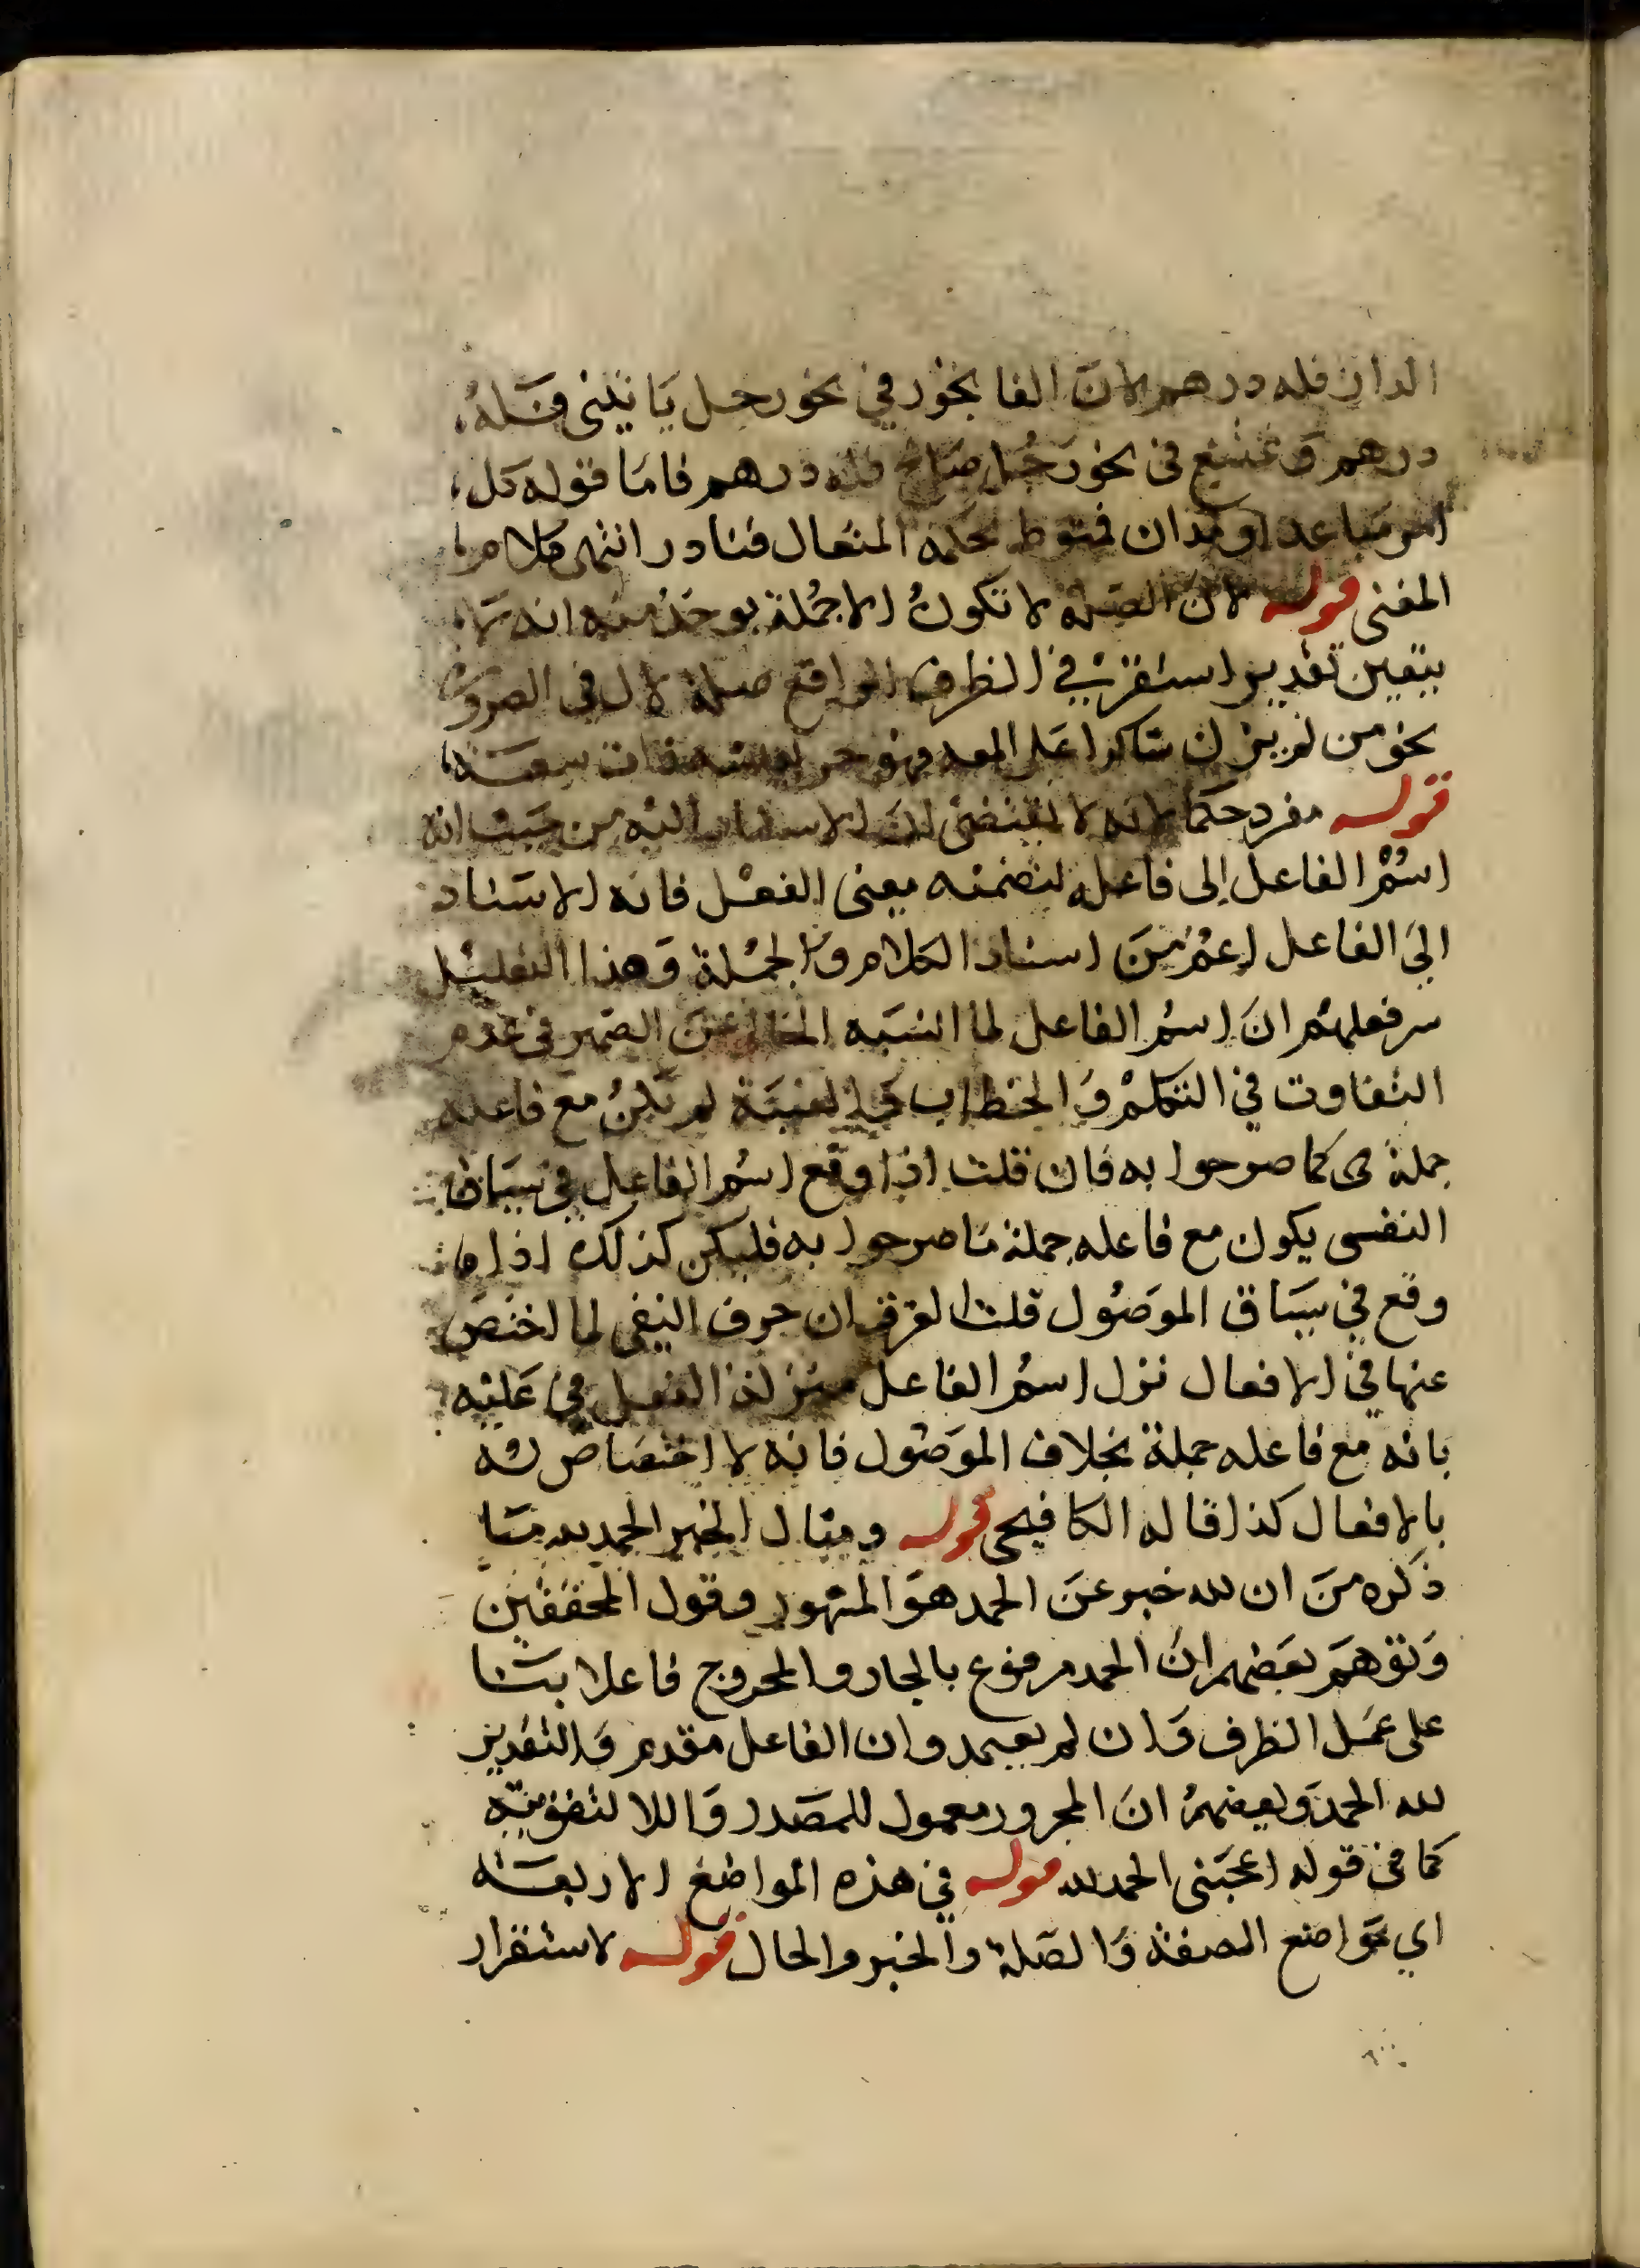 الدار فله درهم لان الفا تجوز في نحو رجل ياتيني فله
درهم وتمتنع في نحو رجل صالح فله درهم فاما قوله كل
امر مباعد او مدان فمنوط بحكمة المتعال فنادر انتهى كلام
المغنى قوله لان الصلة لا تكون الا جملة يوخذ منه انه لا
يتعين تقدير استقر في الظرف الواقع صلة لال في الضرورة
نحو من لا يزال شاكرا على المعه فهو حر بعيشة ذات سعه
قوله مفرد حكما لانه لا يقتضى الاسناد اليه من حيث انه
اسم الفاعل إلى فاعله لتضمنه معنى الفعل فانه الاسناد
الى الفاعل اعم من اسناد الكلام والجملة وهذا التعليل
ان اسم الفاعل لما اشبه الخالي عن الضمير في عدم
التفاوت في التكلم والخطاب والغيبة لم يكن مع فاعله
جملة كما صرحوا به فان قلت اذا وقع اسم الفاعل في سياق
النفى يكون مع فاعله جملة ما صرحوا به فليكن كذلك اذا ما
وقع في سياق الموصول قلت الفرق ان حرف النفى لما اختص
عنها في الافعال نزل اسم الفاعل منزلة الفعل في عليه
بانه مع فاعله جملة بخلاف الموصول فانه لا اختصاص له
بالافعال كذا قاله الكافيجى قوله ومثال الخبر الحمد لله ما
ذكره من ان لله خبر عن الحمد هو المشهور وقول المحققين
وتوهم بعضهم ان الحمد مرفوع بالجار والمجرور فاعلا بنا
على عمل الظرف وان لم يعتمد وان الفاعل مقدم والتقدير
لله الحمد وبعضهم ان المجرور معمول للمصدر واللا لتقويته
كما في قوله اعجبنى الحمد لله قوله في هذه المواضع الاربعة
اي مواضع الصفة والصلة والخبر والحال قوله لاستقرار